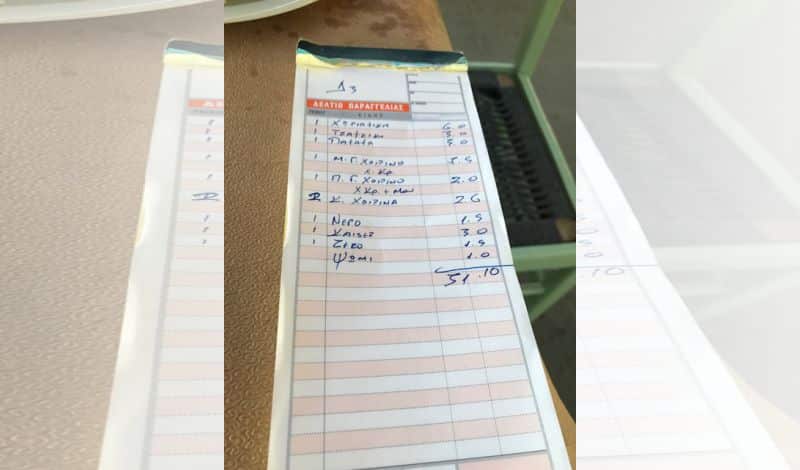 Δ3
ΔΕΛΤΙΟ ΠΑΡΑΓΓΕΛΙΑΣ
ΕΙΔΟΣ
1 ΧΩΡΙΑΤΙΚΗ 6.0
1 ΤΖΑΤΖΙΚΙ 3.0
1 ΠΑΤΑΤΑ
1 Μ.Γ. ΧΟΙΡΙΝΟ
Χ.ΚΡ.
1 Π.Γ. ΧΟΙΡΙΝΟ 2.0
Χ ΚΡ. +
Κ. ΧΟΙΡΙΝΑ 26
1 ΝΕΡΟ 1.5
1 ΚΑΙΖΕΡ 3.0
1 ΖΕΡΟ 1.5
ΨΩΜΙ 1.0
51.10